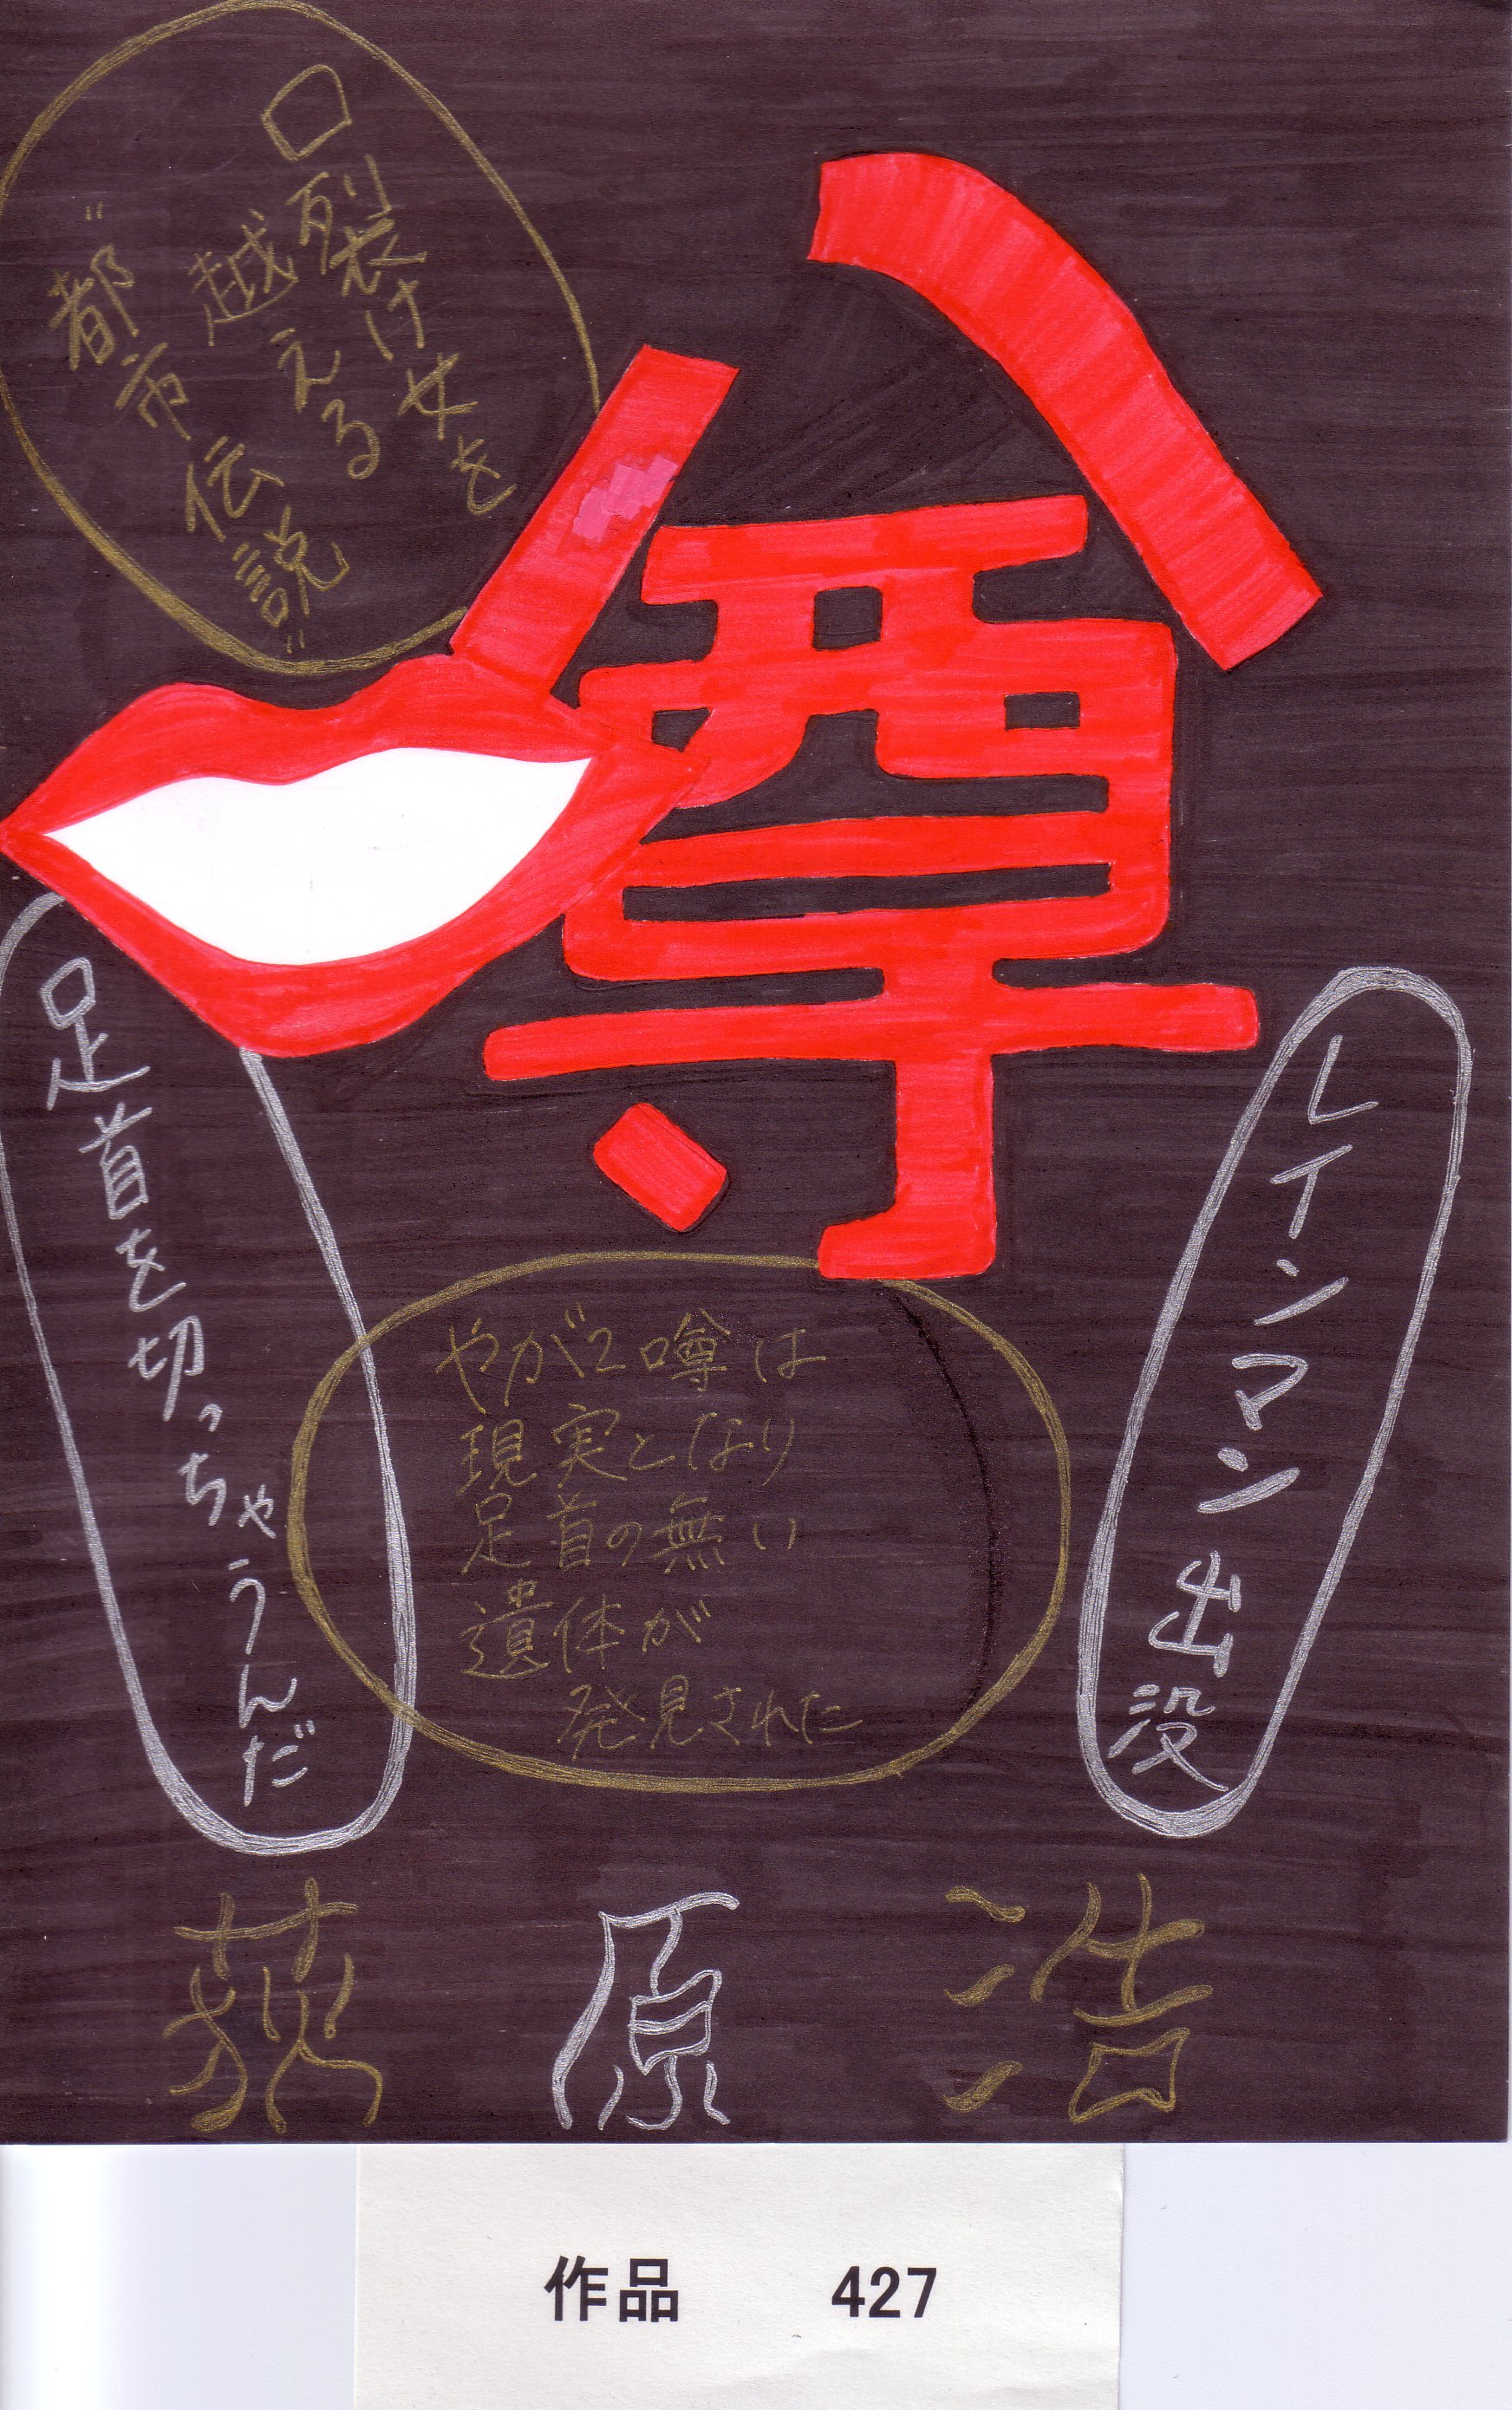 口裂け女を
越える
"都市伝説"
噂
レインマン出没
足首を切っちゃうんだ
やがて噂は
現実となり
足首の無い
遺体が
発見された
荻原浩
作品 427